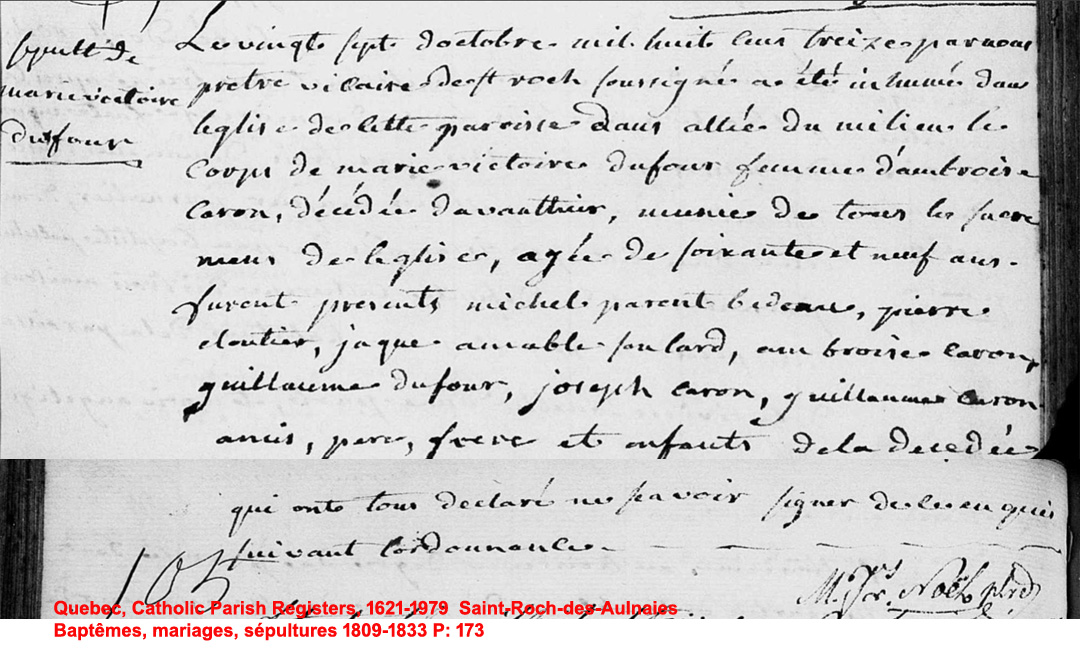 Sepult de
marie victoire
dufour
Le vingt sept doctobre mil huit cens treize par nous
prêtre vicaire de st roch soussigné a été inhumé dans
leglise de cette paroisse dans allée du milieu le
corps de marie victoire dufour femme dambroise
caron, décédée davanthier, munie de tous les sacre
mens de leglise, agée de soixante et neuf ans.
furent présents michel parent bedeau, pierre
cloutier, jaque amable soulard, ambroise caron,
guillaume dufour, joseph caron, guillaume caron
amis, pere, frere et enfants de la decedée
qui ont tous déclaré ne savoir signer de ce enquis
suivant lordonnance.
Noël ptre
Quebec, Catholic Parish Registers, 1621-1979 Saint-Roch-des-Aulnaies
Baptêmes, mariages, sépultures 1809-1833 P: 173